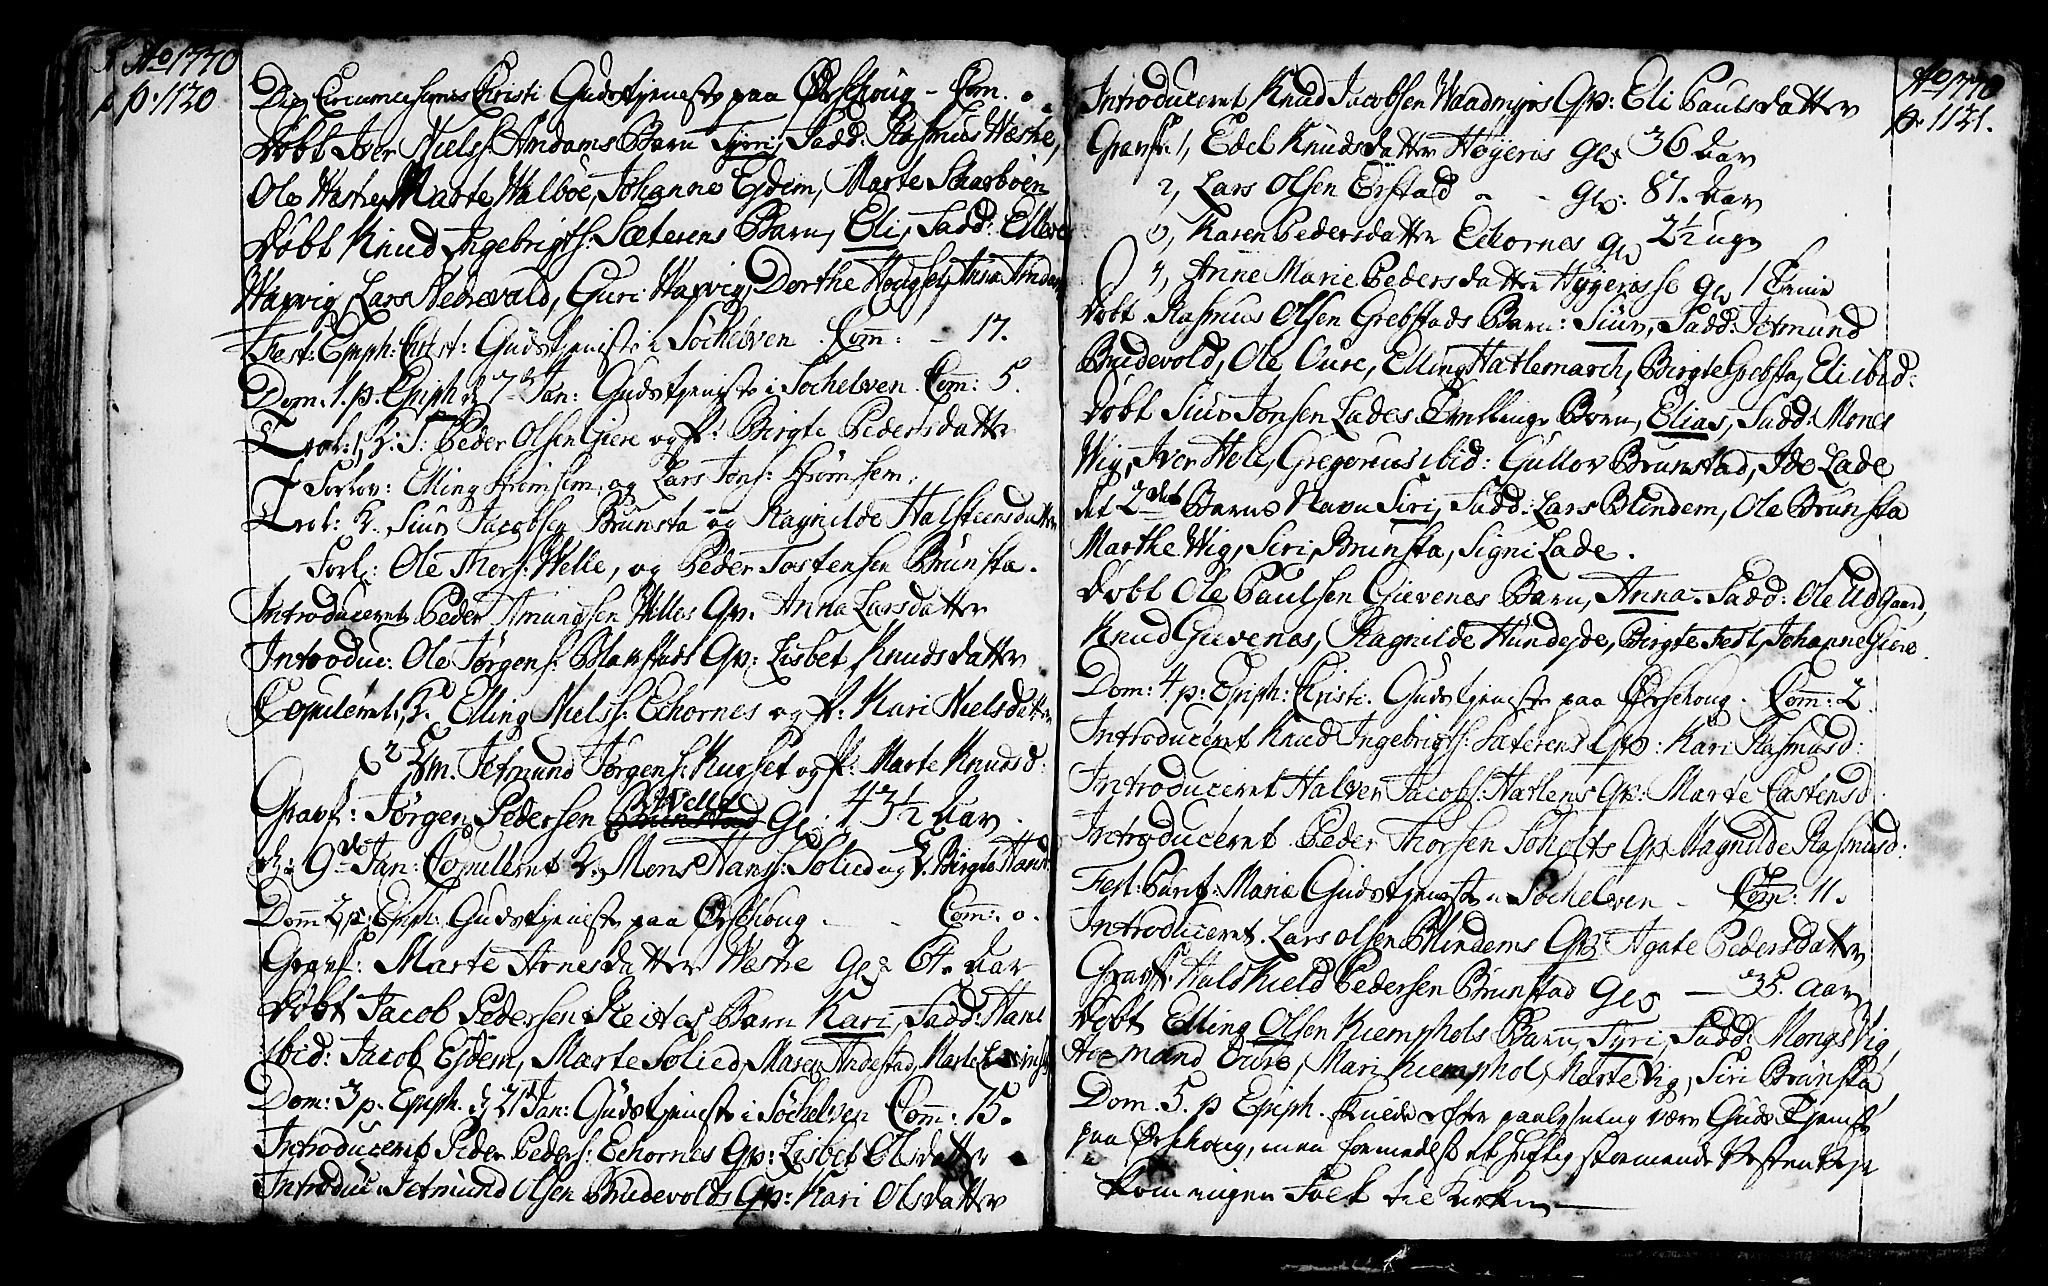 Ao 1770
p. 1120
Die Circumcisionis Christi Gudstjeneste paa Ørschoug - Com. 0.
Døbt Iver Nielss: Amdams Barn Syri, Fadd: Rasmus Westre,
Ole Westre, Marte Walbøe, Johanne Esdem, Marte Scharboen
Døbt Knud Ingebrigts: Sæterens Barn, Eli, Fadd: Ellev
Warvig, Lars Nedrevald, Guri Warvig, Dorthe Hougset, Anna Amdam
Fest: Epiph: Christ: Gudstjeneste i Søchelven Com: - 17.
Dom: 1. p: Epiph d 7de Jan: Gudstjeneste i Sochelven. Com: 5.
Trol: 1, K: S: Peder Olsen Giere og P: Birgte Pedersdatter
Forlov: Elling Strømsem, og Lars Jons: Strømsem.
Trol: K. Siur Jacobsen Brunsta og Ragnilde Halsteensdatter
Forl: Ole Thors: Welle, og Peder Tostensen Brunsta.
Introduceret Peder Amundsen Welles Qv. Anna Larsdatter
Introduc: Ole Jørgens: Blakstads Qv: Lisbet Knudsdatter
Copuleret: K. Elling Nielss: Echornes og P: Kari Nielsdatter
2 Em. Jetmund Jørgens: Kurset og P: Marte Knudsd:
Grauf: Jørgen Pedersen Welle Gl: 43½ Aar.
d: 9de Jan: Copulleret K. Mons Hanss: Solied og P. Birgte Hansd:
Dom 2 p: Epiph: Gudstjeneste paa Ørschoug - - Com: 0.
Grauf: Marte Arnesdatter Westre Gl: 64. Aar
Døbt Jacob Pedersen Reites Barn Kari, Fadd: Hans
ibid: Jacob Esdem, Marte Solied, Maren Andestad, Marte
Dom: 3 p. Epiph. d 21de Jan: Gudstjeneste i Søchelven Com: 15.
Introduceret Peder Peders: Echornes Qv: Lisbet Olsdatter
Introduc: Jetmund Olsen Brudevolds Qv: Kari Olsdatter
Ao 1770
p. 1121.
Introduceret Knud Jacobsen Waadmyrs Qv: Eli Paulsdatter
Grauf: 1, Edel Knudsdatter Høyeris Gl: 36 Aar
2, Lars Olsen Erstad - - Gl: 87. Aar
3, Karen Pedersdatter Echornes Gl 2½ uge
4, Anne Marie Pedersdatter Gl 1
Døbt Rasmus Olsen Grebstads Barn: Siur, Fadd: Jetmund
Brudevold, Ole Oure, Elling Hatlemarch, Birgte Grebsta, Eli ibid:
Døbt Siur Jonsen Lades Tvillinge Børn, Elias, Fadd: Mons
Wig, Iver Hole, Gregorius ibid: Gullov Brunstad, Ide Lade
det 2det Barns Navn Siri, Fadd: Lars Blindem, Ole Brunsta
Marthe Wig, Siri Brunsta, Signi Lade.
Døbt Ole Paulsen Giævenes Barn, Anna. Fadd: Ole Udgaard,
Knud Giævenes, Ragnilde Hundejde, Birgte Fest, Johanne Giere.
Dom: 4 p: Epiph: Christi. Gudstjeneste paa Ørschoug. Com: 2.
Introduceret Knud Ingebrigts: Sæterens Qv: Kari Rasmusd:
Introduceret Halvor Jacobs: Hatlens Qv: Marte Castensd
Introduceret Peder Thorsen Soholts Qv Magnilde Rasmusd:
Fest: Purif: Mariæ Gudstjeneste i Søchelven - Com: 11.
Introduceret. Lars Olsen Blindems Qv: Agate Pedersdatter
Grauf: Halskield Pedersen Brunstad Gl - 35. Aar
Døbt Elling Olsen Kiemphols Barn, Syri, Fadd: Mongs Vig,
Ole Oure, Mari Kiemphol, Merte Vig, Siri Brunsta
Dom. 5. p Epiph. skulde efter paalysning være Guds Tjeneste
paa Ørschoug, men formedelst et heftig stormende Vesten Vejr
kom ingen Folk til Kirken